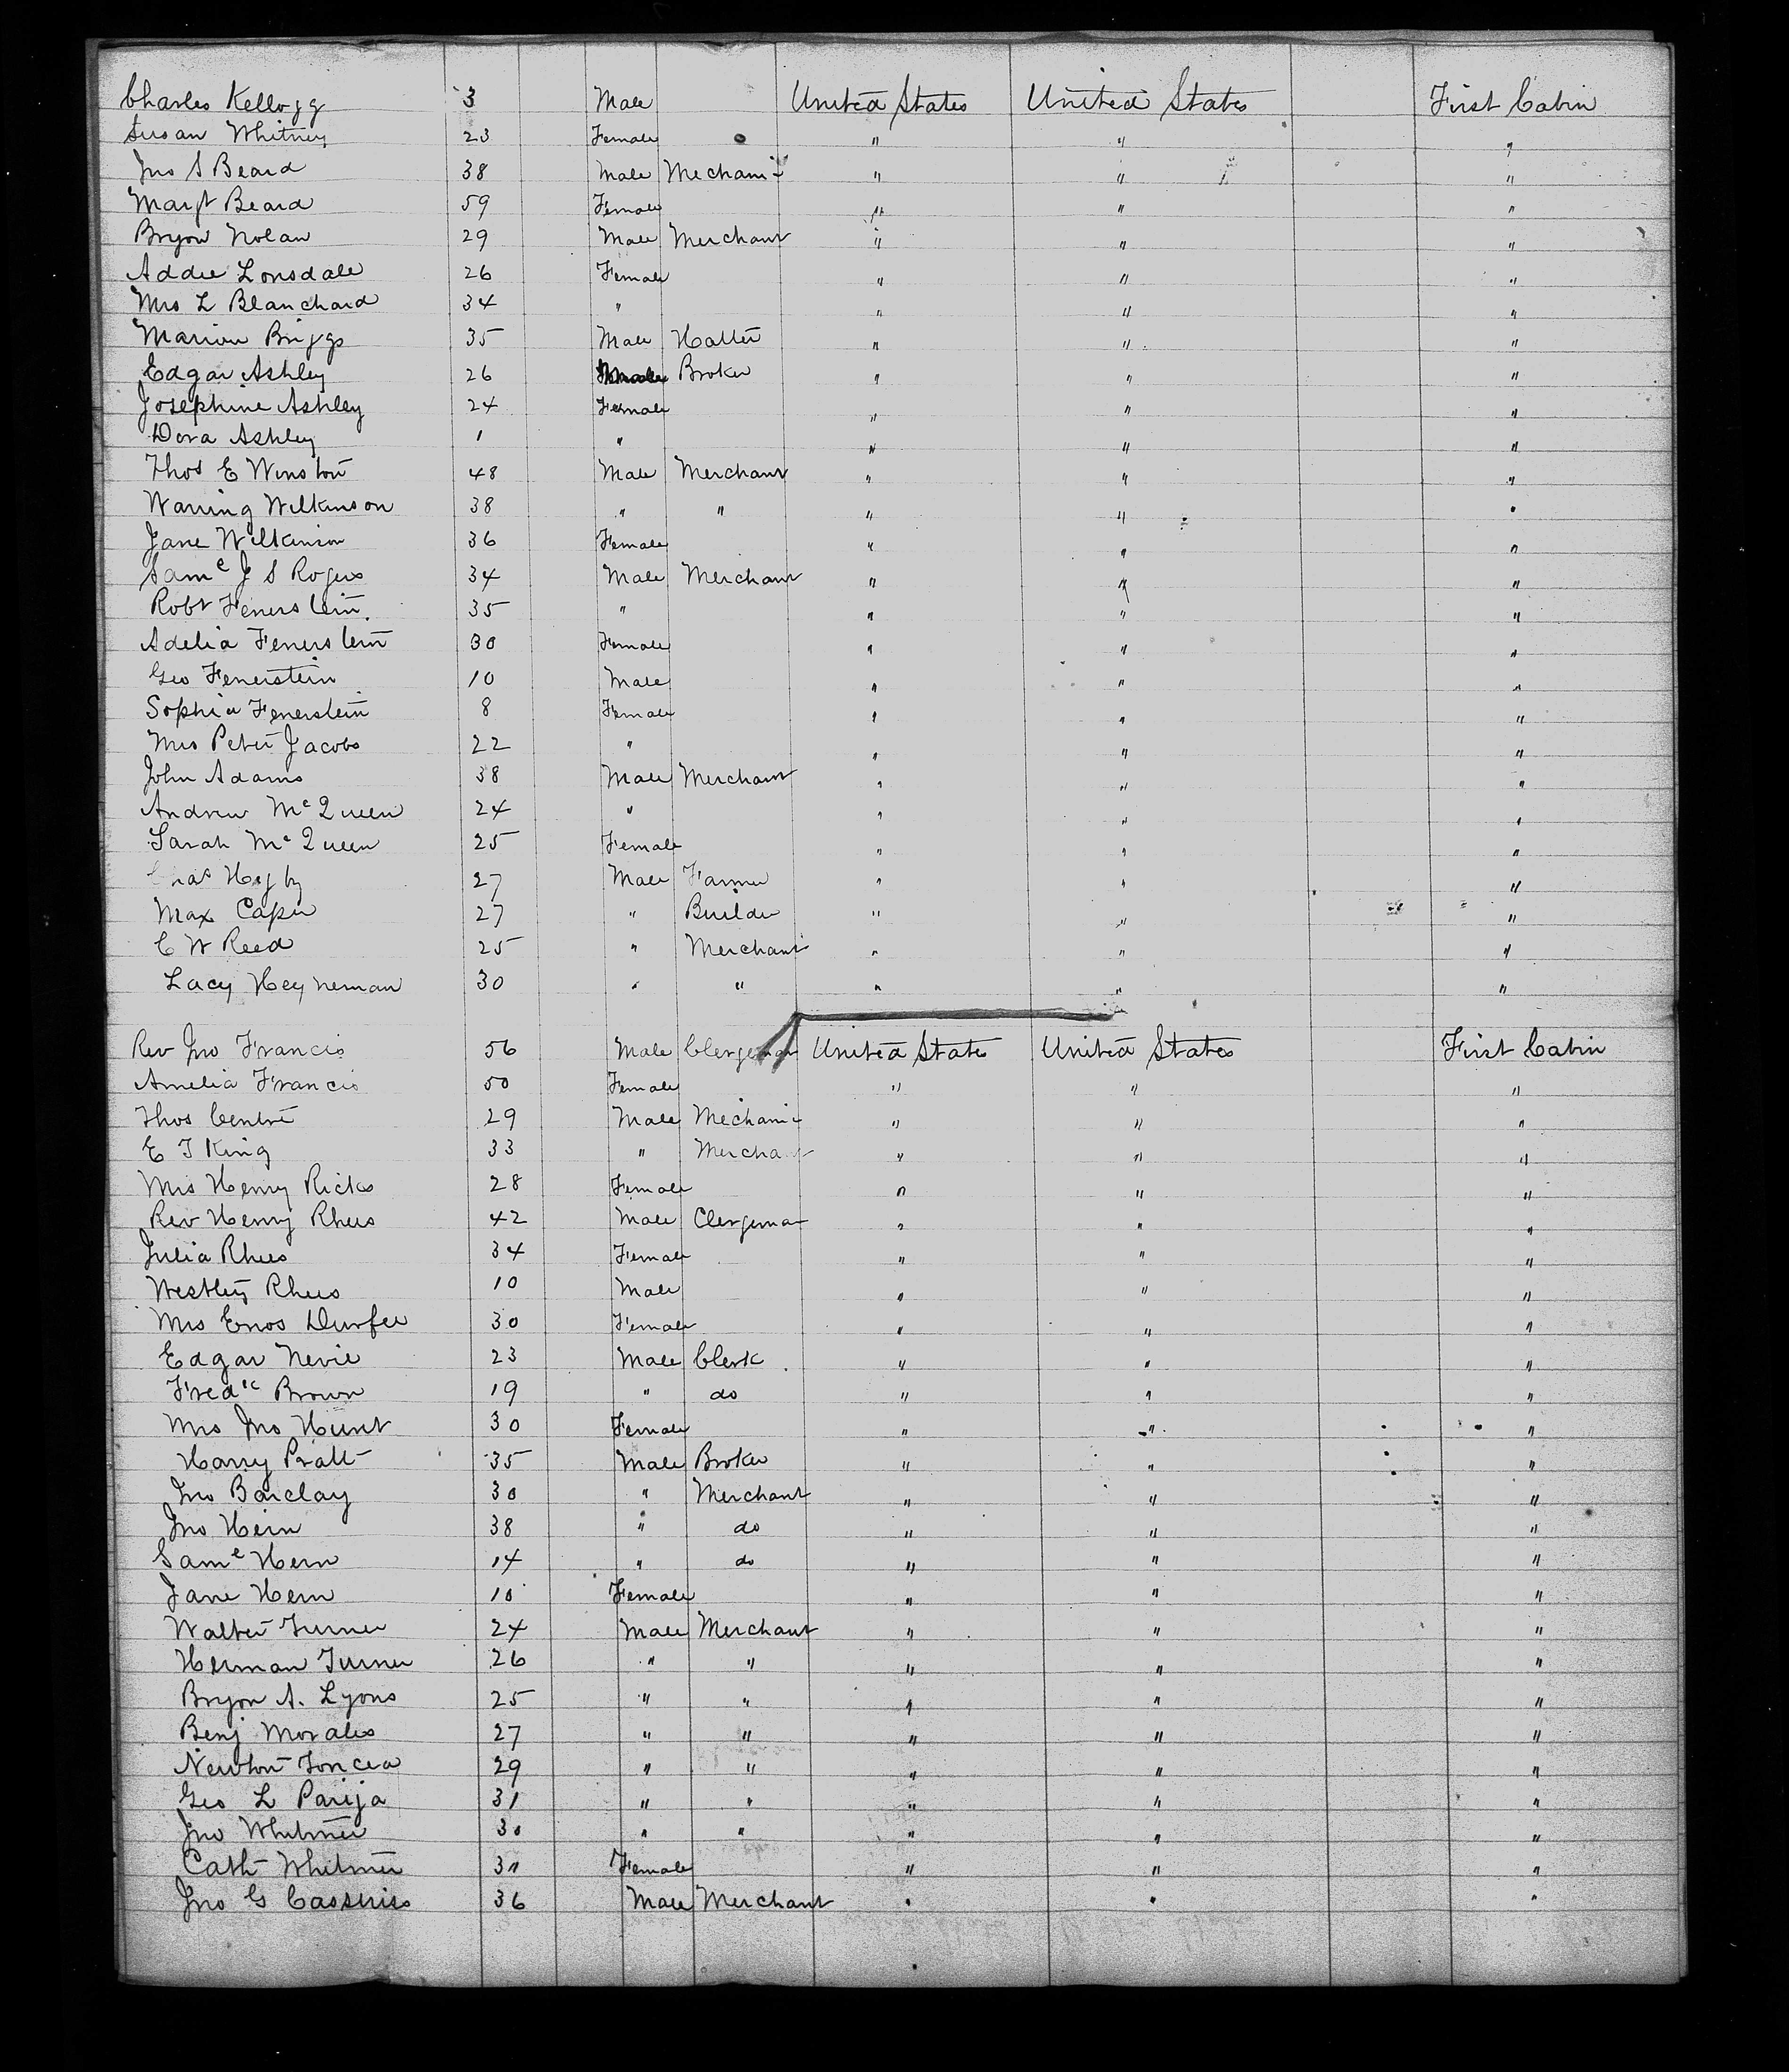 Charles Kellogg 3 Male United States United States First Cabin
Susan Whitney 23 Female " " "
Jno S Beard 38 Male Mechanic " " "
Margt Beard 59 Female " " "
Bryon Nolan 29 Male Merchant " " "
Addie Lonsdale 26 Female " " "
Mrs L Blanchard 34 " " " "
Marion Briggs 35 Male Hatter " " "
Edgar Ashley 26 Male Broker " " "
Josephine Ashley 24 Female " " "
Dora Ashley 1 " " " "
Thos E Winston 48 Male Merchant " " "
Warring Wilkinson 38 " " " " "
Jane Wilkinson 36 Female " " "
Saml J S Rogers 34 Male Merchant " " "
Robt Fenerstein 35 " " " "
Adelia Fenerstein 30 Female " " "
Geo Fenerstein 10 Male " " "
Sophia Fenerstein 8 Female " " "
Mrs Peter Jacobs 22 " " " "
John Adams 38 Male Merchant " " "
Andrew McQueen 24 " " " "
Sarah McQueen 25 Female " " "
Chas 27 Male Farmer " " "
Max Caper 27 " Builder " " "
C W Reed 25 " Merchant " " "
Lacy Heyneman 30 " " " " "
Rev Jno Francis 56 Male Clergeman United States United States First Cabin
Amelia Francis 50 Female " " "
Thos Centre 29 Male Mechanic " " "
E T King 33 " Merchant " " "
Mrs Henry Ricks 28 Female " " "
Rev Henry Rhees 42 Male Clergeman " " "
Julia Rhees 34 Female " " "
Westley Rhees 10 Male " " "
Mrs Enos Durfee 30 Female " " "
Edgar Nevie 23 Male Clerk " " "
Fredic Brown 19 " do " " "
Mrs Jno Hunt 30 Female " " "
Harry Pratt 35 Male Broker " " "
Jno Barclay 30 " Merchant " " "
Jno Hern 38 " do " " "
Saml Hern 14 " do " " "
Jane Hern 10 Female " " "
Walter Turner 24 Male Merchant " " "
Herman Turner 26 " " " " "
Bryon A. Lyons 25 " " " " "
Benj Morales 27 " " " " "
Newton 29 " " " " "
Geo L Parija 31 " " " " "
Jno Whitmer 30 " " " " "
Cath Whitmer 30 Female " " "
Jno G 36 Male Merchant " " "